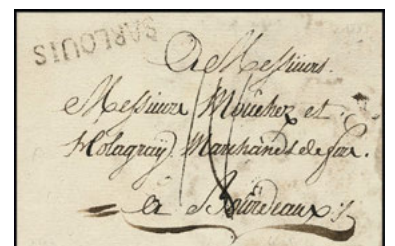 SARLOUIS
A Messieurs.
Messieurs Moucher et
Holagray). Marchands de fer.
a Bourdeaux ./.